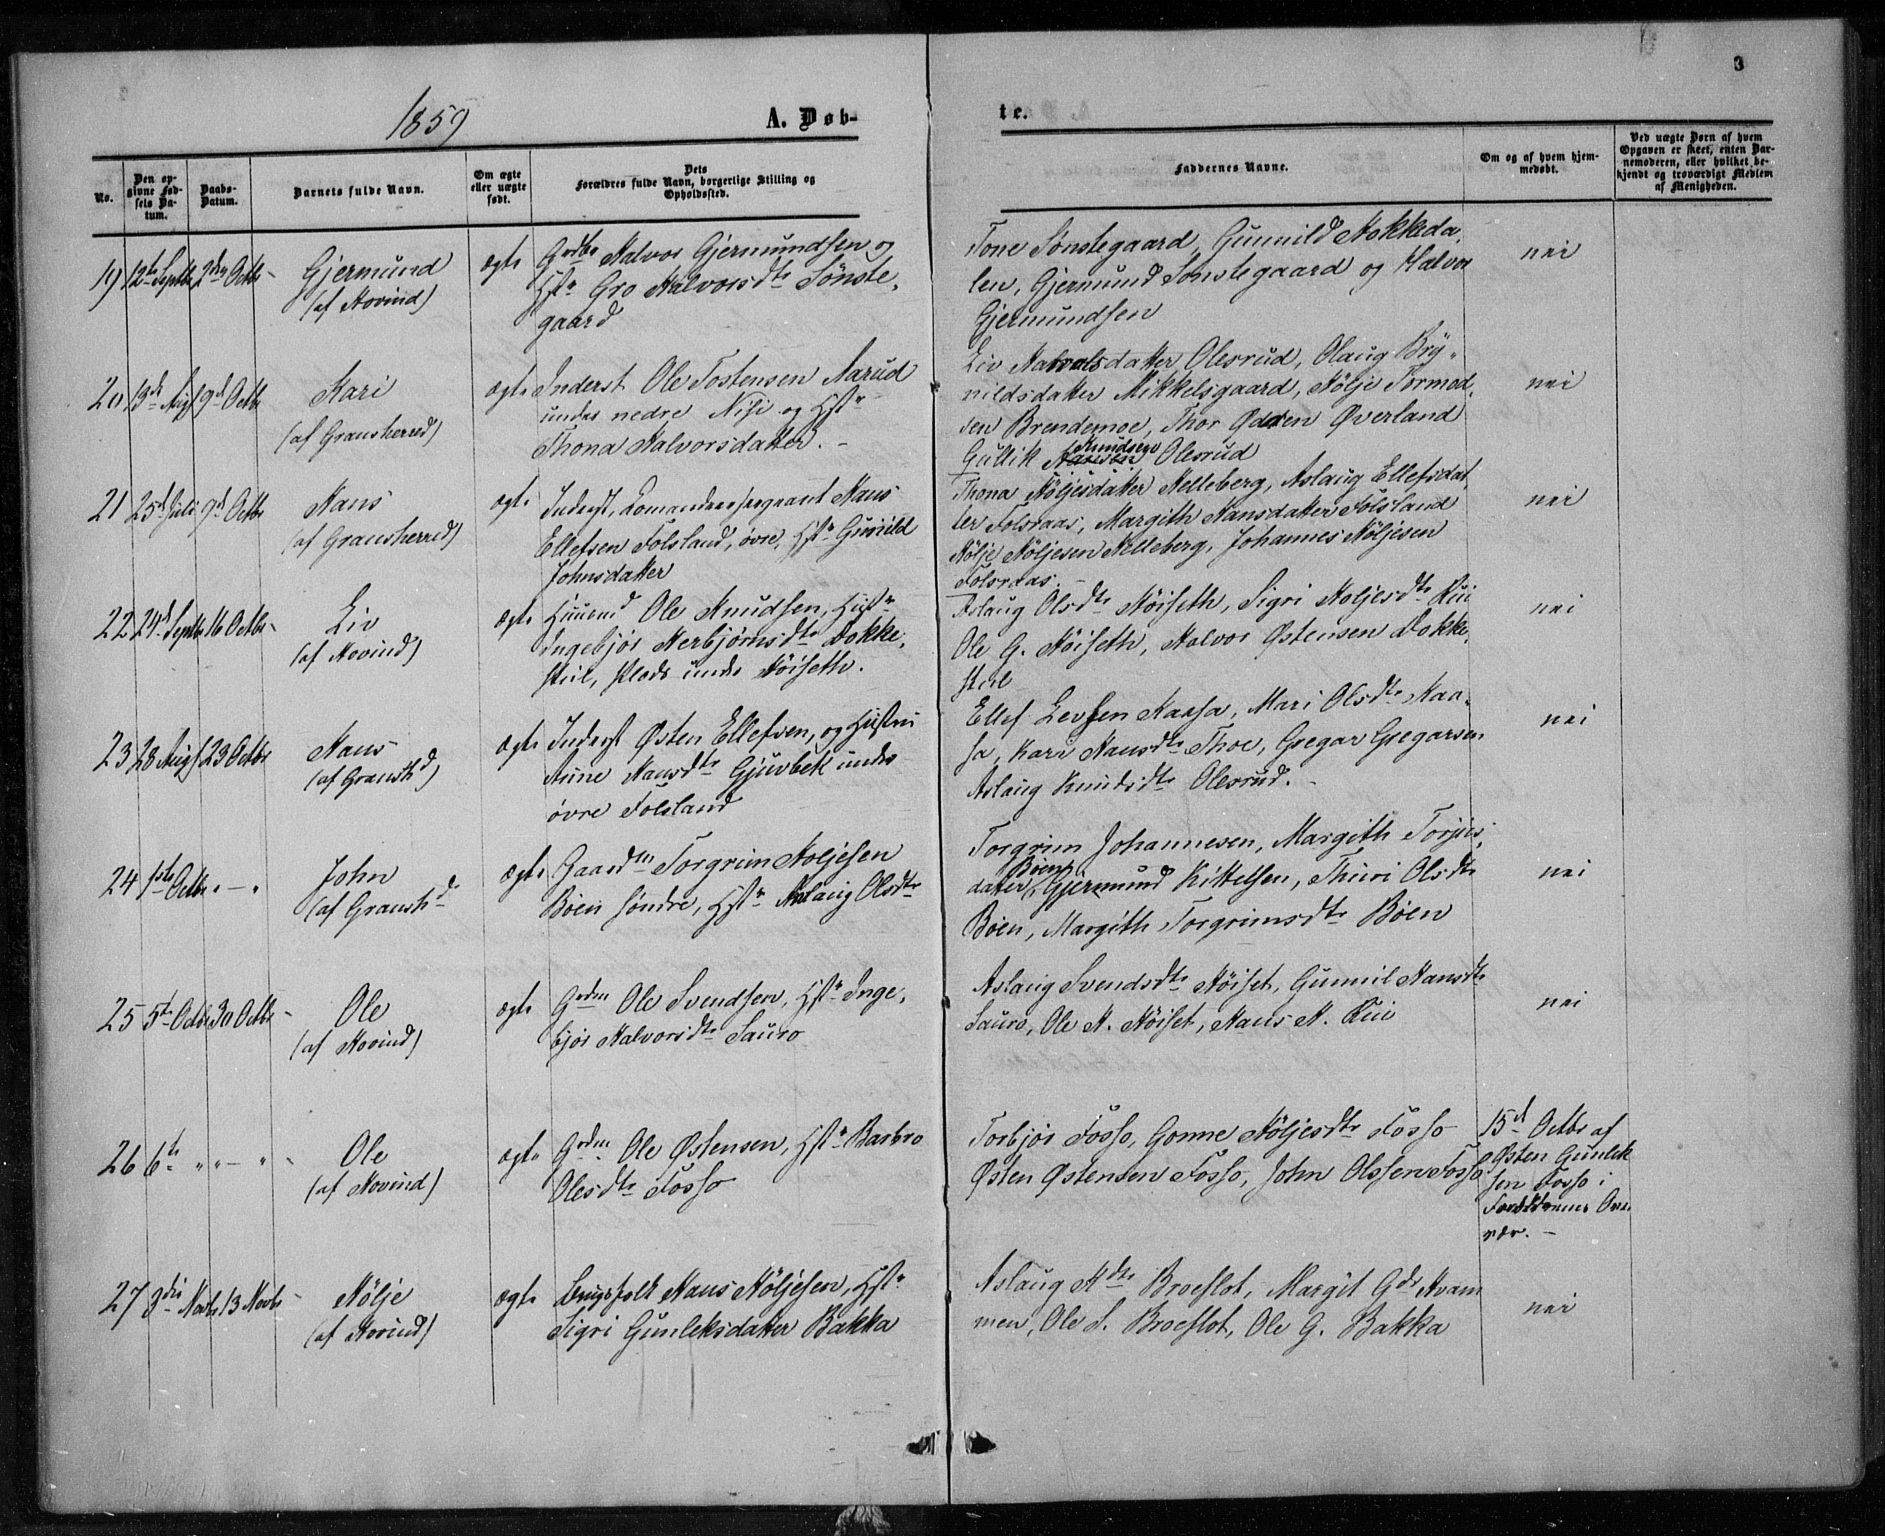 3
1859
A. Døb-
te.
No.
Den op-
givne Fød-
sels Da-
tum.
Daabs-
Datum.
Barnets fulde Navn.
Om ægte
eller uægte
født.
Dets
Forældres fulde Navn, borgerlige Stilling og
Opholdssted.
Faddernes Navne.
Om og af hvem hjem-
medøbt.
Ved uægte Børn af hvem
Opgaven er skeet, enten Bar-
nemoderen, eller hvilket be-
kjendt og troværdigt Medlem
af Menigheden.
19 12te Septbr 2den Octbr
Gjermund
(af Hovind)
ægte
Grdbr Halvor Gjermundsen og
Hstr Gro Halvorsdtr Sønste-
gaard
Tone Sønstegaard, Gunnild Kokkeda-
len, Gjermund Sønstegaard og Halvor
Gjermundsen
nei
20 13de Augs 9d Octbr
Kari
(af Gransherred)
ægte
Inderst Ole Tostensen Aarud
under nedre Nisi og Hstr
Thona Halvorsdatter. -
Liv Halvorsdatter Olesrud, Olaug Bry-
nildsdatter Mikkelsgaard, Hølje Tormod-
sen Brendemoe, Thor Odden Øverland
Gullik Knudsen Olesrud
nei
21 25d Juli 9d Octbr
Hans
(af Gransherred)
ægte
Inderst, Komandeersergeant Hans
Ellefsen Folsland, øvre, Hstr Gunild
Johnsdatter
Thona Høljesdatter Helleberg, Aslaug Ellefsdat-
ter Folsraas, Margith Hansdatter Folsland
Hølje Høljesen Helleberg, Johannes Høljesen
Folsraas. -
nei
22 24d Septbr 16 Octbr
Liv
(af Hovind)
ægte
Huusmd Ole Knudsen, Hustr
Ingebjør Herbjørnsdtr Dokke-
stul, Plads under Høiseth.
Aslaug Olsdtr Høiseth, Sigri Holjesdtr Rui
Ole G. Høiseth, Halvor Østensen Dokke-
stul
nei
23 28 Augs 23 Octbr
Hans
(af Gransthd)
ægte
Inderst Østen Ellefsen, og Hustru
Anne Hansdtr Gjuvbek under
øvre Folsland
Ellef Levsen Kaasa, Mari Olsdtr Kaa-
sa, Kari Hansdtr Thoe, Gregar Gregarsen
Aslaug Knudsdtr Olesrud. -
nei
24 1ste Octbr " - "
John
(af Gransthd)
ægte
Gaardm Torgrim Holjesen
Bøen søndre, Hstr Aslaug Olsdtr
Torgrim Johannesen, Margith Torjus-
datter Bøen, Gjermund Kittelsen, Thuri Olsdtr
Bøen, Margith Torgrimsdtr Bøen
nei
25 5te Octbr 30 Octbr
Ole
(af Hovind)
ægte
Grdm Ole Svendsen, Hstr Inge-
bjør Halvorsdtr Sauro
Aslaug Svendsdtr Høiset, Gunnil Hansdtr
Sauro, Ole H. Høiset, Hans H. Rui
nei
26 6te " " - " -
Ole
(af Hovind)
ægte
Grdm Ole Østensen, Hstr Barbro
Olesdtr Fosso
Torbjør Fosso, Gonne Høljesdtr Fosso
Østen Østensen Fosso, John Olssen Fosso
15d Octbr af
Østen Gunlek-
sen Fosso i
Forældrenes Over-
vær. -
27 8de Novbr 13 Novbr
Hølje
(af Hovind)
ægte
Brugsfolk Hans Høljesen, Hstr
Sigri Gunleksdatter Bakka
Aslaug Hdtr Broeflot, Margit Gdr Kvam
men, Ole S. Broeflot, Ole G. Bakka
nei